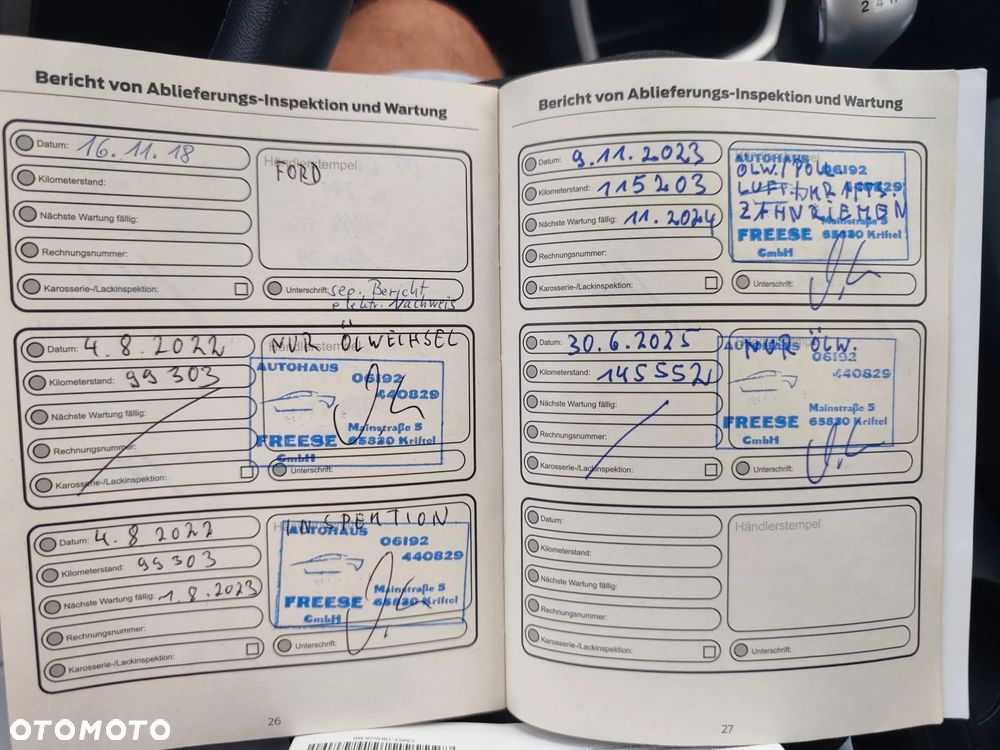 Bericht von Ablieferungs-Inspektion und Wartung
Datum: 16.11.18
Kilometerstand:
Nächste Wartung fällig:
Rechnungsnummer:
Karosserie-/Lackinspektion:
Händlerstempel
FORD
Unterschrift: sep. Bericht
elektr. Nachweis
Datum: 4.8.2022
Kilometerstand: 99303
Nächste Wartung fällig:
Rechnungsnummer:
Karosserie-/Lackinspektion:
NUR ÖLWECHSEL
AUTOHAUS
06192
440829
Mainstraße 5
FREESE 65830 Kriftel
GmbH
Unterschrift:
Datum: 4.8 2022
Kilometerstand: 99303
Nächste Wartung fällig: 1.8.2023
Rechnungsnummer:
Karosserie-/Lackinspektion:
INSPEKTION
AUTOHAUS
06192
440829
Mainstraße 5
FREESE 65830 Kriftel
GmbH
Unterschrift:
26
Bericht von Ablieferungs-Inspektion und Wartung
Datum: 9.11.2023
Kilometerstand: 115203
Nächste Wartung fällig: 11.2024
Rechnungsnummer:
Karosserie-/Lackinspektion:
AUTOHAUS
ÖLW./POLL
06192
LUFT
440829
ZAHNRIEMEN
Mainstraße 5
FREESE 65830 Kriftel
GmbH
Unterschrift:
Datum: 30.6.2025
Kilometerstand: 145552
Nächste Wartung fällig:
Rechnungsnummer:
Karosserie-/Lackinspektion:
NUR ÖLW.
AUTOHAUS
06192
440829
Mainstraße 5
FREESE 65830 Kriftel
GmbH
Unterschrift:
Datum:
Kilometerstand:
Nächste Wartung fällig:
Rechnungsnummer:
Karosserie-/Lackinspektion:
Händlerstempel
Unterschrift:
27
OTOMOTO